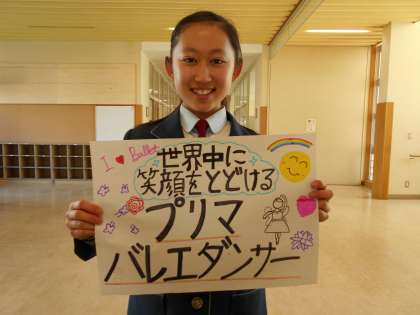 I ♥ Ballet
世界中に
笑顔をとどける
プリマ
バレエダンサー